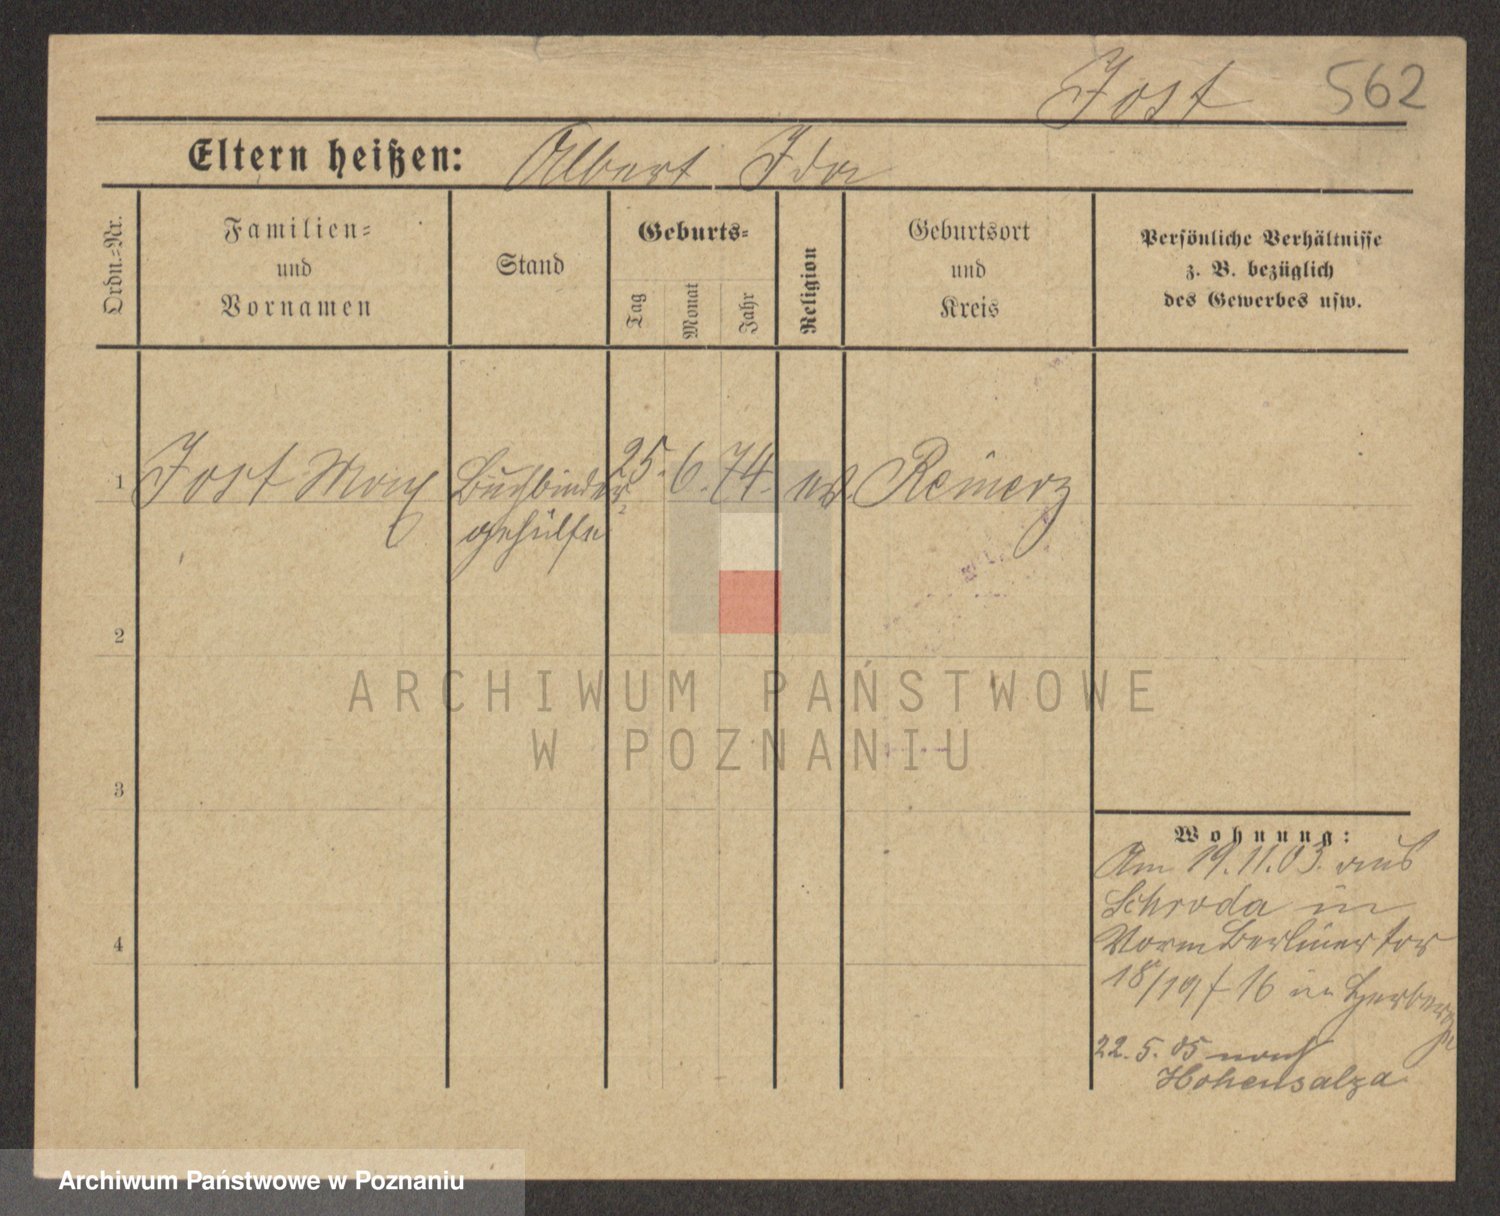 Jost 562
Eltern heißen: Albert Ida
Ordn.-Nr.
Familien-
und
Vornamen
Stand
Geburts-
Tag
Monat
Jahr
Religion
Geburtsort
und
Kreis
Persönliche Verhältnisse
z. B. bezüglich
des Gewerbes usw.
1 Jost Max Buchbinder 25. 6. 74. ev. Reinerz
gehülfe
2
3
4
Wohnung:
Am 19.11.03. aus
Schroda in
Vorm Berlinertor
18/19 f 16 in Herberge
22. 5. 05 nach
Hohensalza
ARCHIWUM PAŃSTWOWE
W POZNANIU
Archiwum Państwowe w Poznaniu